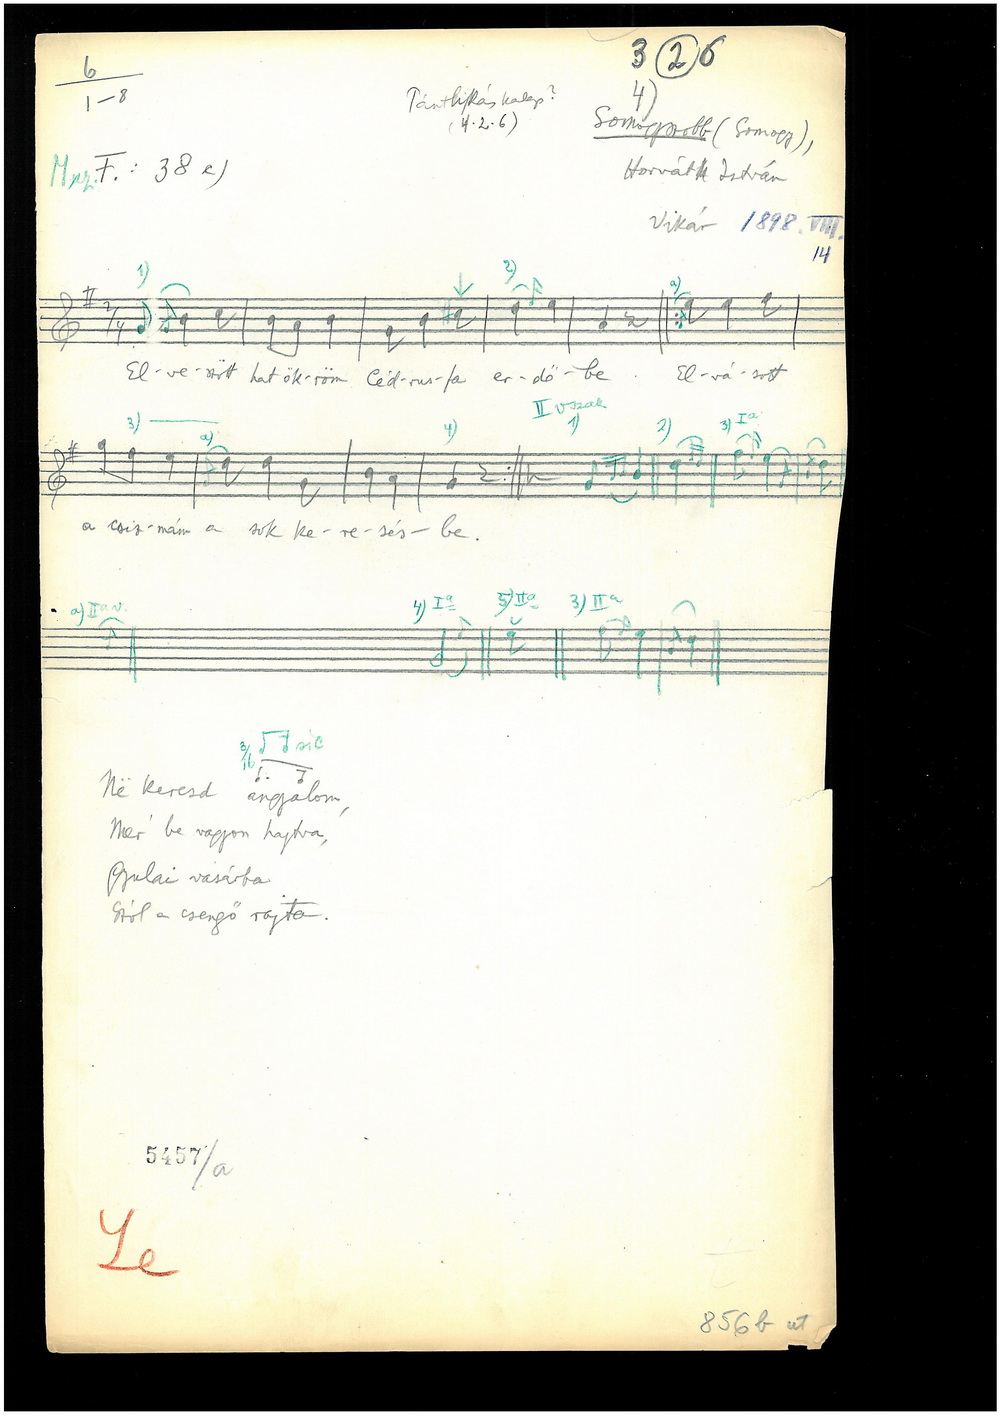 6
1–8
3 2 6
4)
(4·2·6)
Somogyszobb (Somogy),
Horváth István
F.: 38 e)
Vikár 1898. VIII.
14
1) 2) a)
2/4
El-ve-szött hat ök-röm Céd-rus-fa er-dő-be. El-vá-sott
II vszak
3) a) 4) 1) 2) 3) Ia
a csiz-mám a sok ke-re-sés-be.
a) IIa v. 4) Ia 5) IIa 3) IIa
3/16 sic
Në keresd angyalom,
Mer' be vagyon hajtva,
Gyulai vásárba
Szól a csengő rajta.
5457/a
856 b